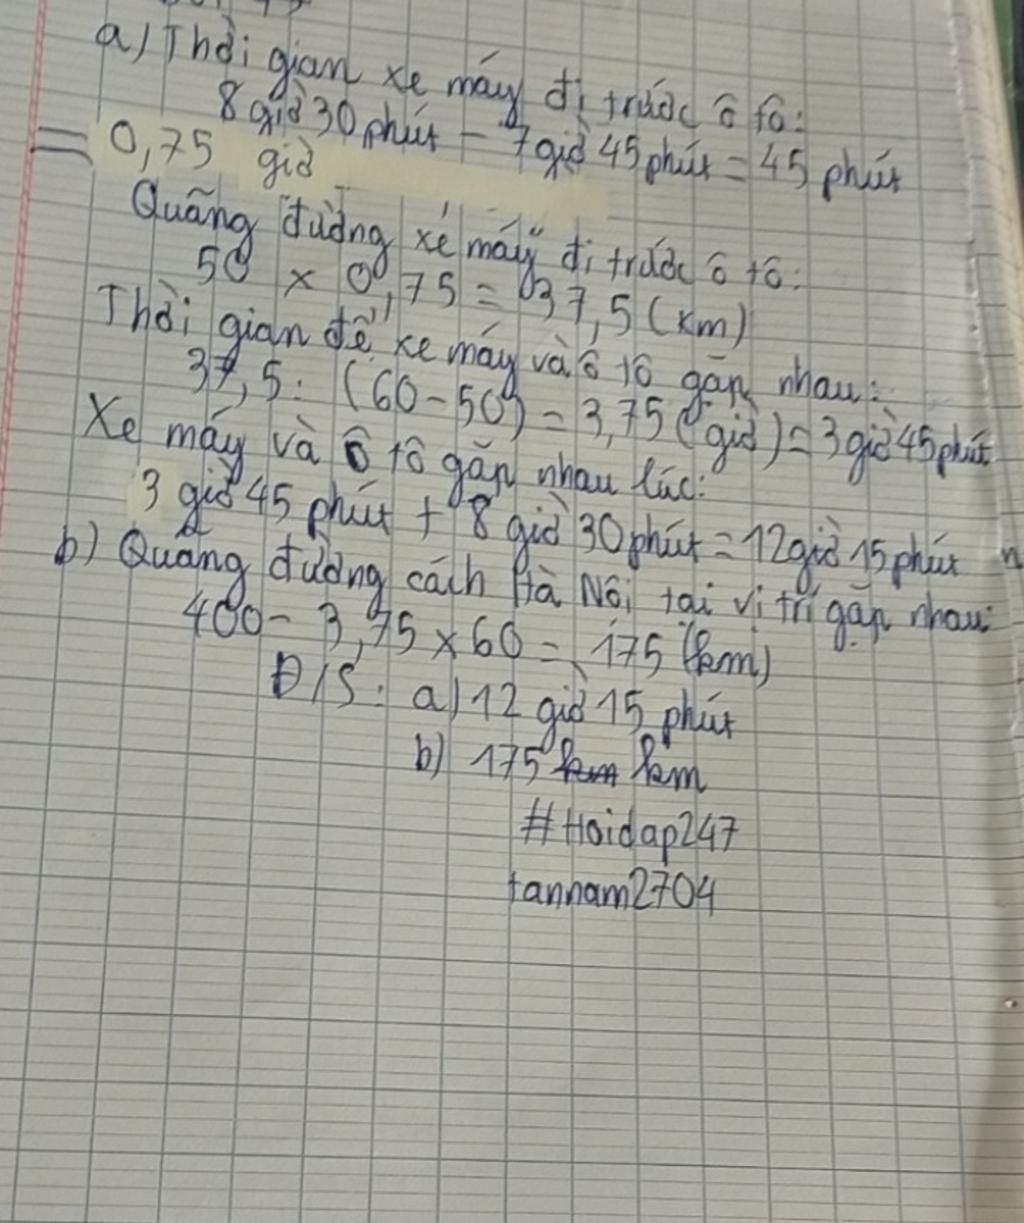 a) Thời gian xe máy đi trước ô tô:
8 giờ 30 phút - 7 giờ 45 phút = 45 phút
= 0,75 giờ
Quãng đường xe máy đi trước ô tô:
50 x 0,75 = 37,5 (km)
Thời gian để xe máy và ô tô gặp nhau:
37,5 : (60 - 50) = 3,75 (giờ) = 3 giờ 45 phút
Xe máy và ô tô gặp nhau lúc:
3 giờ 45 phút + 8 giờ 30 phút = 12 giờ 15 phút
b) Quãng đường cách Hà Nội tại vị trí gặp nhau:
400 - 3,75 x 60 = 175 (km)
Đ/S: a) 12 giờ 15 phút
b) 175 km
#Hoidap247
tannam2704